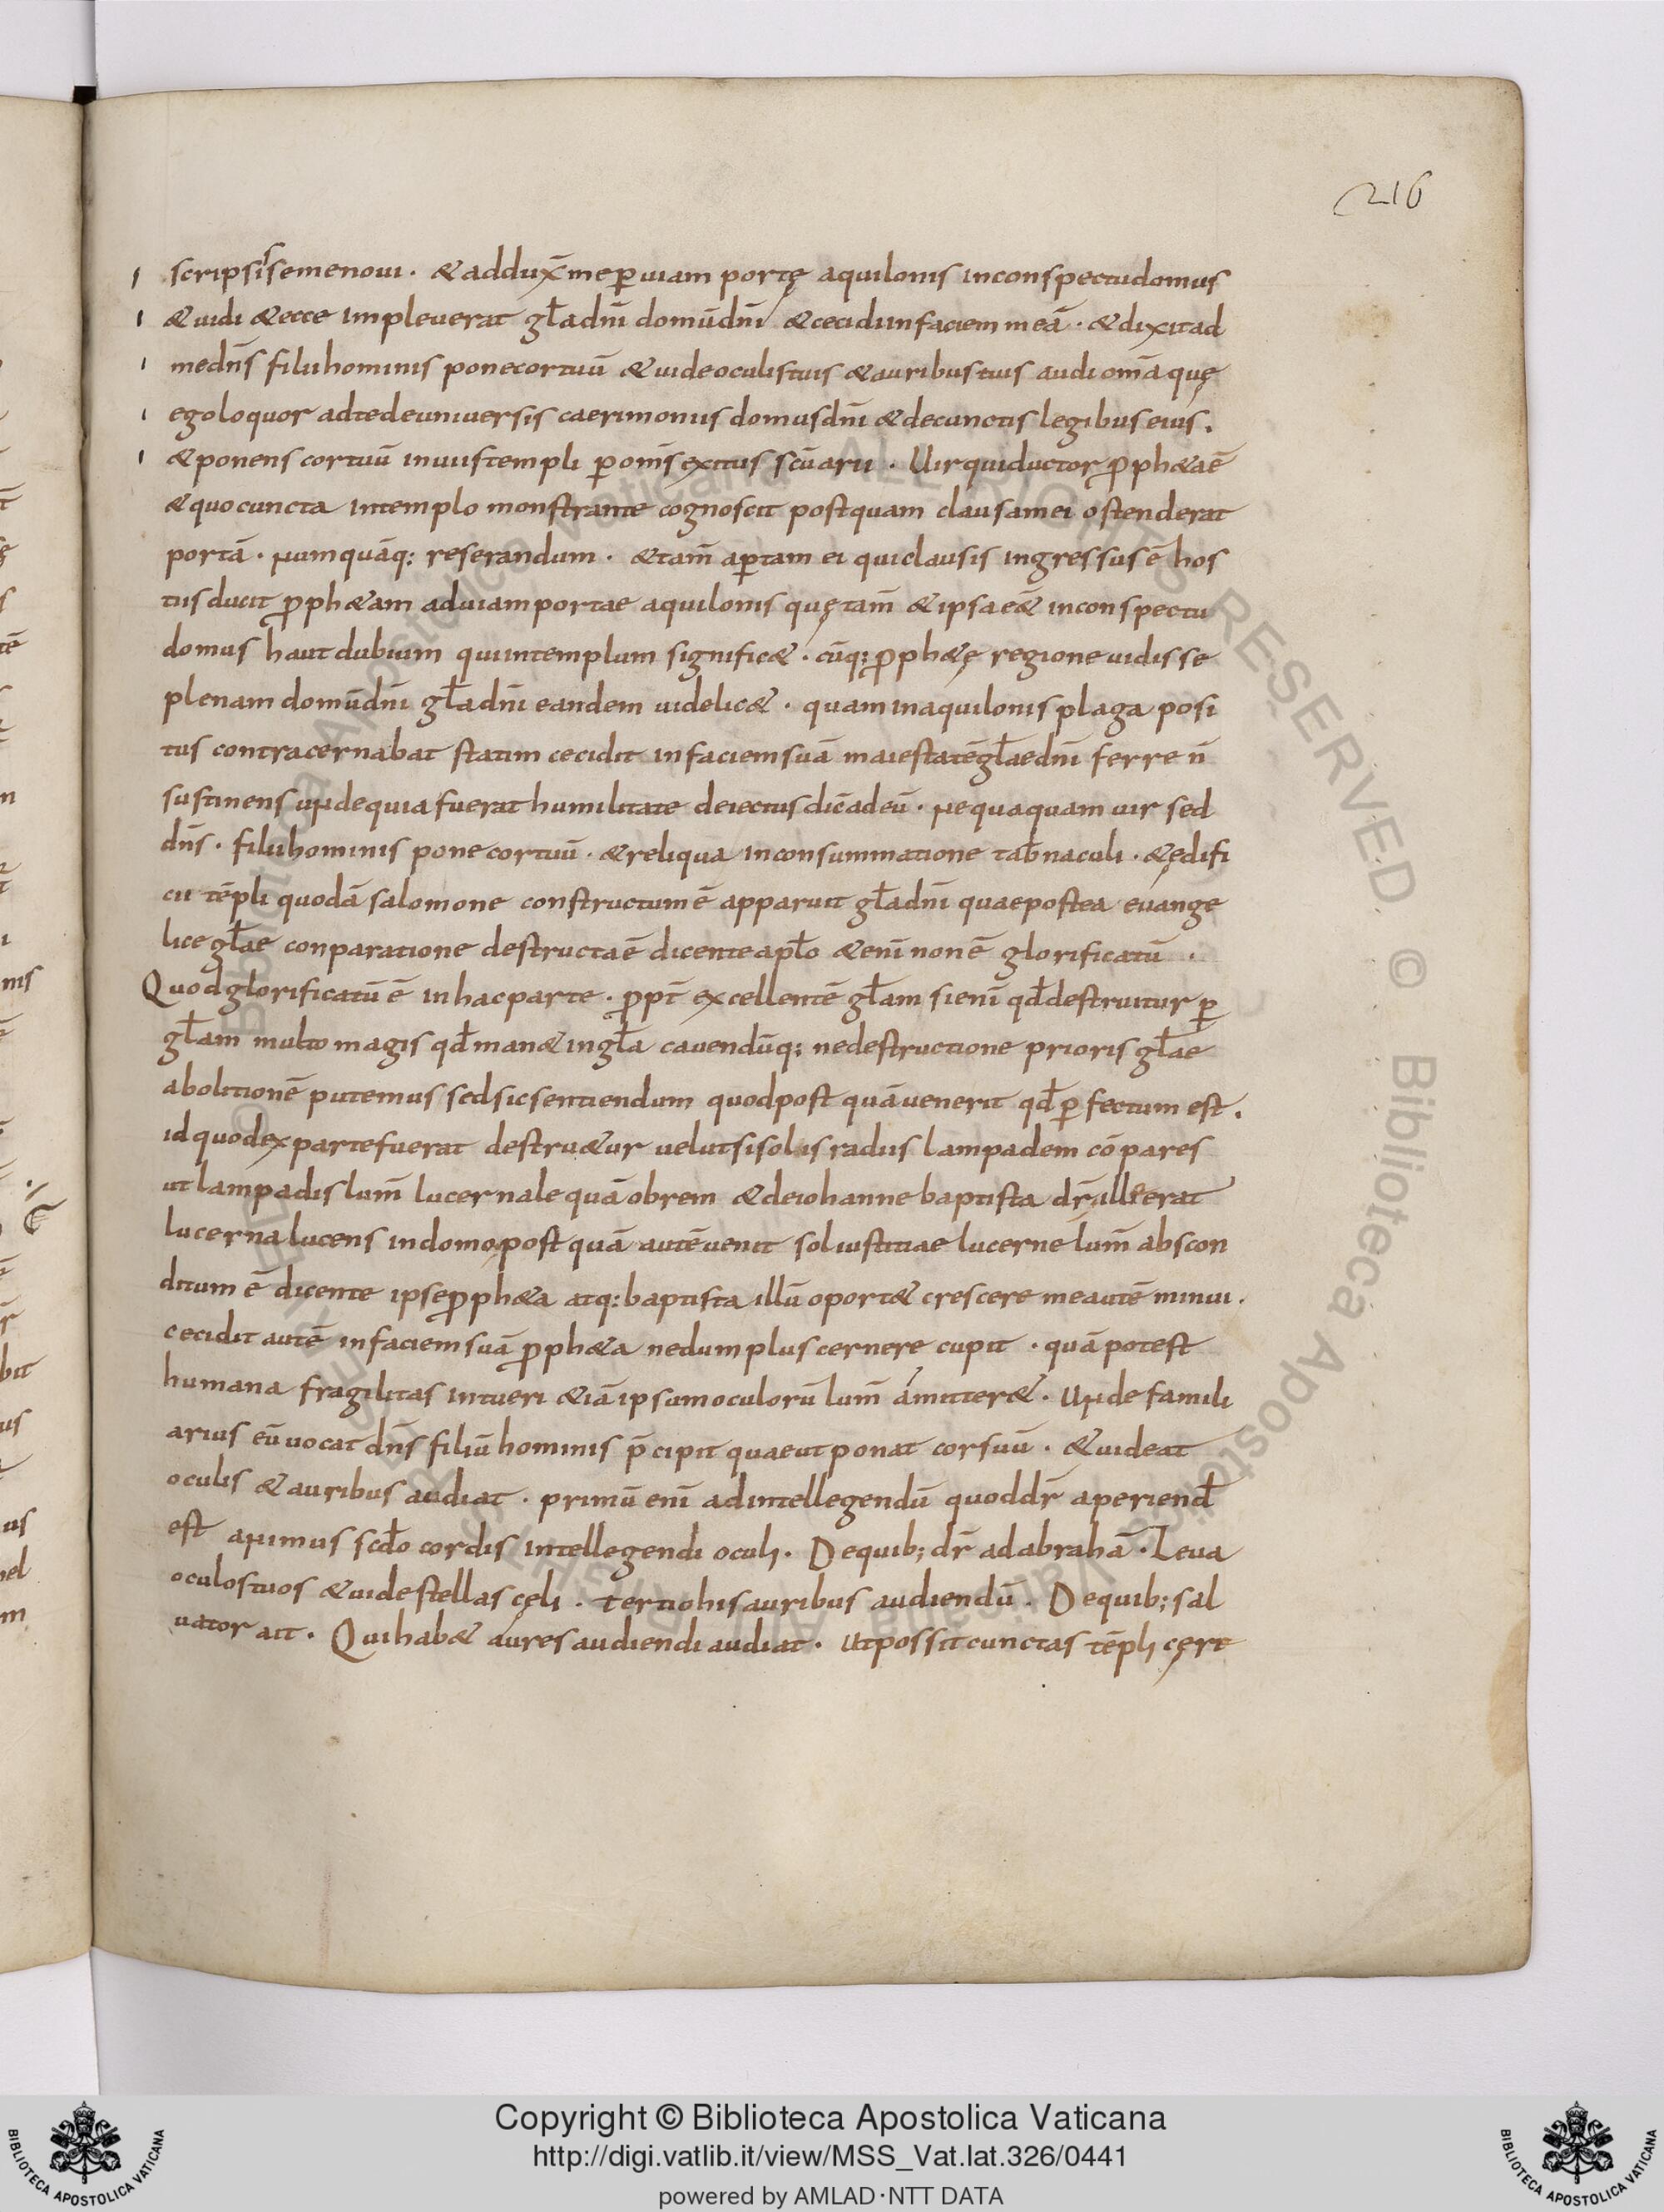 216
scripsisse me noui · & addux̄ me ꝑ uiam portę aquilonis in conspectu domus
& uidi & ecce impleuerat gła dn̄i domū dn̄i & cecidi in faciem meā · & dixit ad
me dn̄s fili hominis pone cor tuū & uide oculis tuis & auribus tuis audi om̄a quę
ego loquor ad te de uniuersis caerimoniis domus dn̄i & de cunctis legibus eius .
& ponens cor tuū in uiis templi ꝑ om̄s exitus scūarii · Uir qui ductor ꝓph&ae ē
& quo cuncta in templo monstrante cognoscit postquam clausam ei ostenderat
portā · numquāq; reserandum · &tam̄ aꝑtam ei qui clausis ingressus ē hos
tiis ducit ꝓph&am ad uiam portae aquilonis quę tam̄ & ipsa e& in conspectu
domus haut dubium quin templum signific& · cūq; ꝓph&ę regione uidisse
plenam domū dn̄i gła dn̄i eandem uidelic& · quam in aquilonis plaga posi
tus contra cernabat statim cecidit in faciem suā maiestatē głae dn̄i ferre n̄
sustinens unde quia fuerat humilitate deiectus dic̄ ad eū · nequaquam uir sed
dn̄s · fili hominis pone cor tuū · & reliqua in consummatione tab̄naculi · & ędifi
cii tēpli quod a salomone constructum ē apparuit gła dn̄i quae postea euange
lice głae conparatione destructa ē dicente apło & enī non ē glorificatū ·
Quod glorificatū ē in hac parte · ꝓpt̄ excellentē głam si enī qđ destruitur ꝑ
głam multo magis qđ man& in gła cauendūq; ne destructione prioris głae
abolitionē putemus sed sic sentiendum quod post quā uenerit qđ ꝑfectum est .
id quod ex parte fuerat destru&ur uelut si solis radiis lampadem cō pares
ut lampadis lum̄ lucernale quā obrem & de iohanne baptista dr̄ ille erat
lucerna lucens in domo post quā autē uenit sol iustitiae lucerne lum̄ abscon
ditum ē dicente ipse ꝓph&a atq; baptista illū oport& crescere me autē minui .
cecidit autē in faciem suā ꝓph&a ne dum plus cernere cupit · quā potest
humana fragilitas intueri &iā ipsum oculorū lum̄ amitter& · Unde famili
arius eū uocat dn̄s filiū hominis p̄cipit quae ut ponat cor suū · & uideat
oculis & auribus audiat · primū enī ad intellegendū quod dr̄ aperienđ
est animus scđo cordis intellegendi oculi · De quib; dr̄ ad abrahā · Leua
oculos tuos & uide stellas cęli · tertio his auribus audiendū · De quib; sal
uator ait · Qui hab& aures audiendi audiat · ut possit cunctas tēpli cęrt
Copyright © Biblioteca Apostolica Vaticana
http://digi.vatlib.it/view/MSS_Vat.lat.326/0441
powered by AMLAD·NTT DATA
BIBLIOTECA APOSTOLICA VATICANA
BIBLIOTECA APOSTOLICA VATICANA